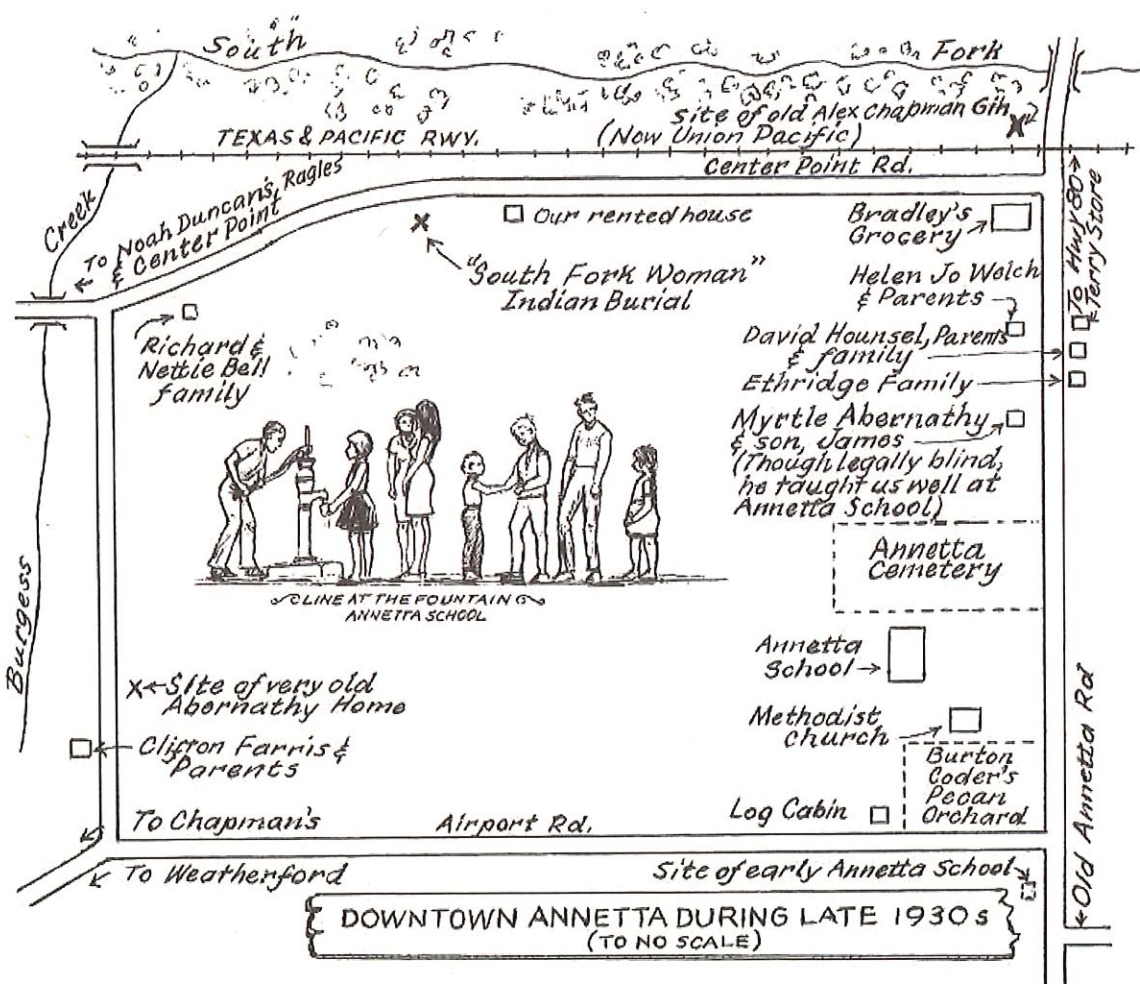 South Fork
site of old Alex Chapman Gin
TEXAS & PACIFIC RWY.
(Now Union Pacific)
Center Point Rd.
Creek
To Noah Duncan's, Ragles
& Center Point
Our rented house
Bradley's
Grocery
"South Fork Woman"
Indian Burial
Helen Jo Welch
& Parents
To Hwy 80
Terry Store
Richard &
Nettie Bell
family
David Hounsel, Parents
& family
Ethridge Family
Myrtle Abernathy
& son, James
(Though legally blind,
he taught us well at
Annetta School)
Annetta
Cemetery
LINE AT THE FOUNTAIN
ANNETTA SCHOOL
Burgess
Annetta
School
Site of very old
Abernathy Home
Methodist
church
Clifton Farris &
Parents
Burton
Coder's
Pecan
Orchard
Old Annetta Rd
To Chapman's
Airport Rd.
Log Cabin
To Weatherford
Site of early Annetta School
DOWNTOWN ANNETTA DURING LATE 1930s
(TO NO SCALE)